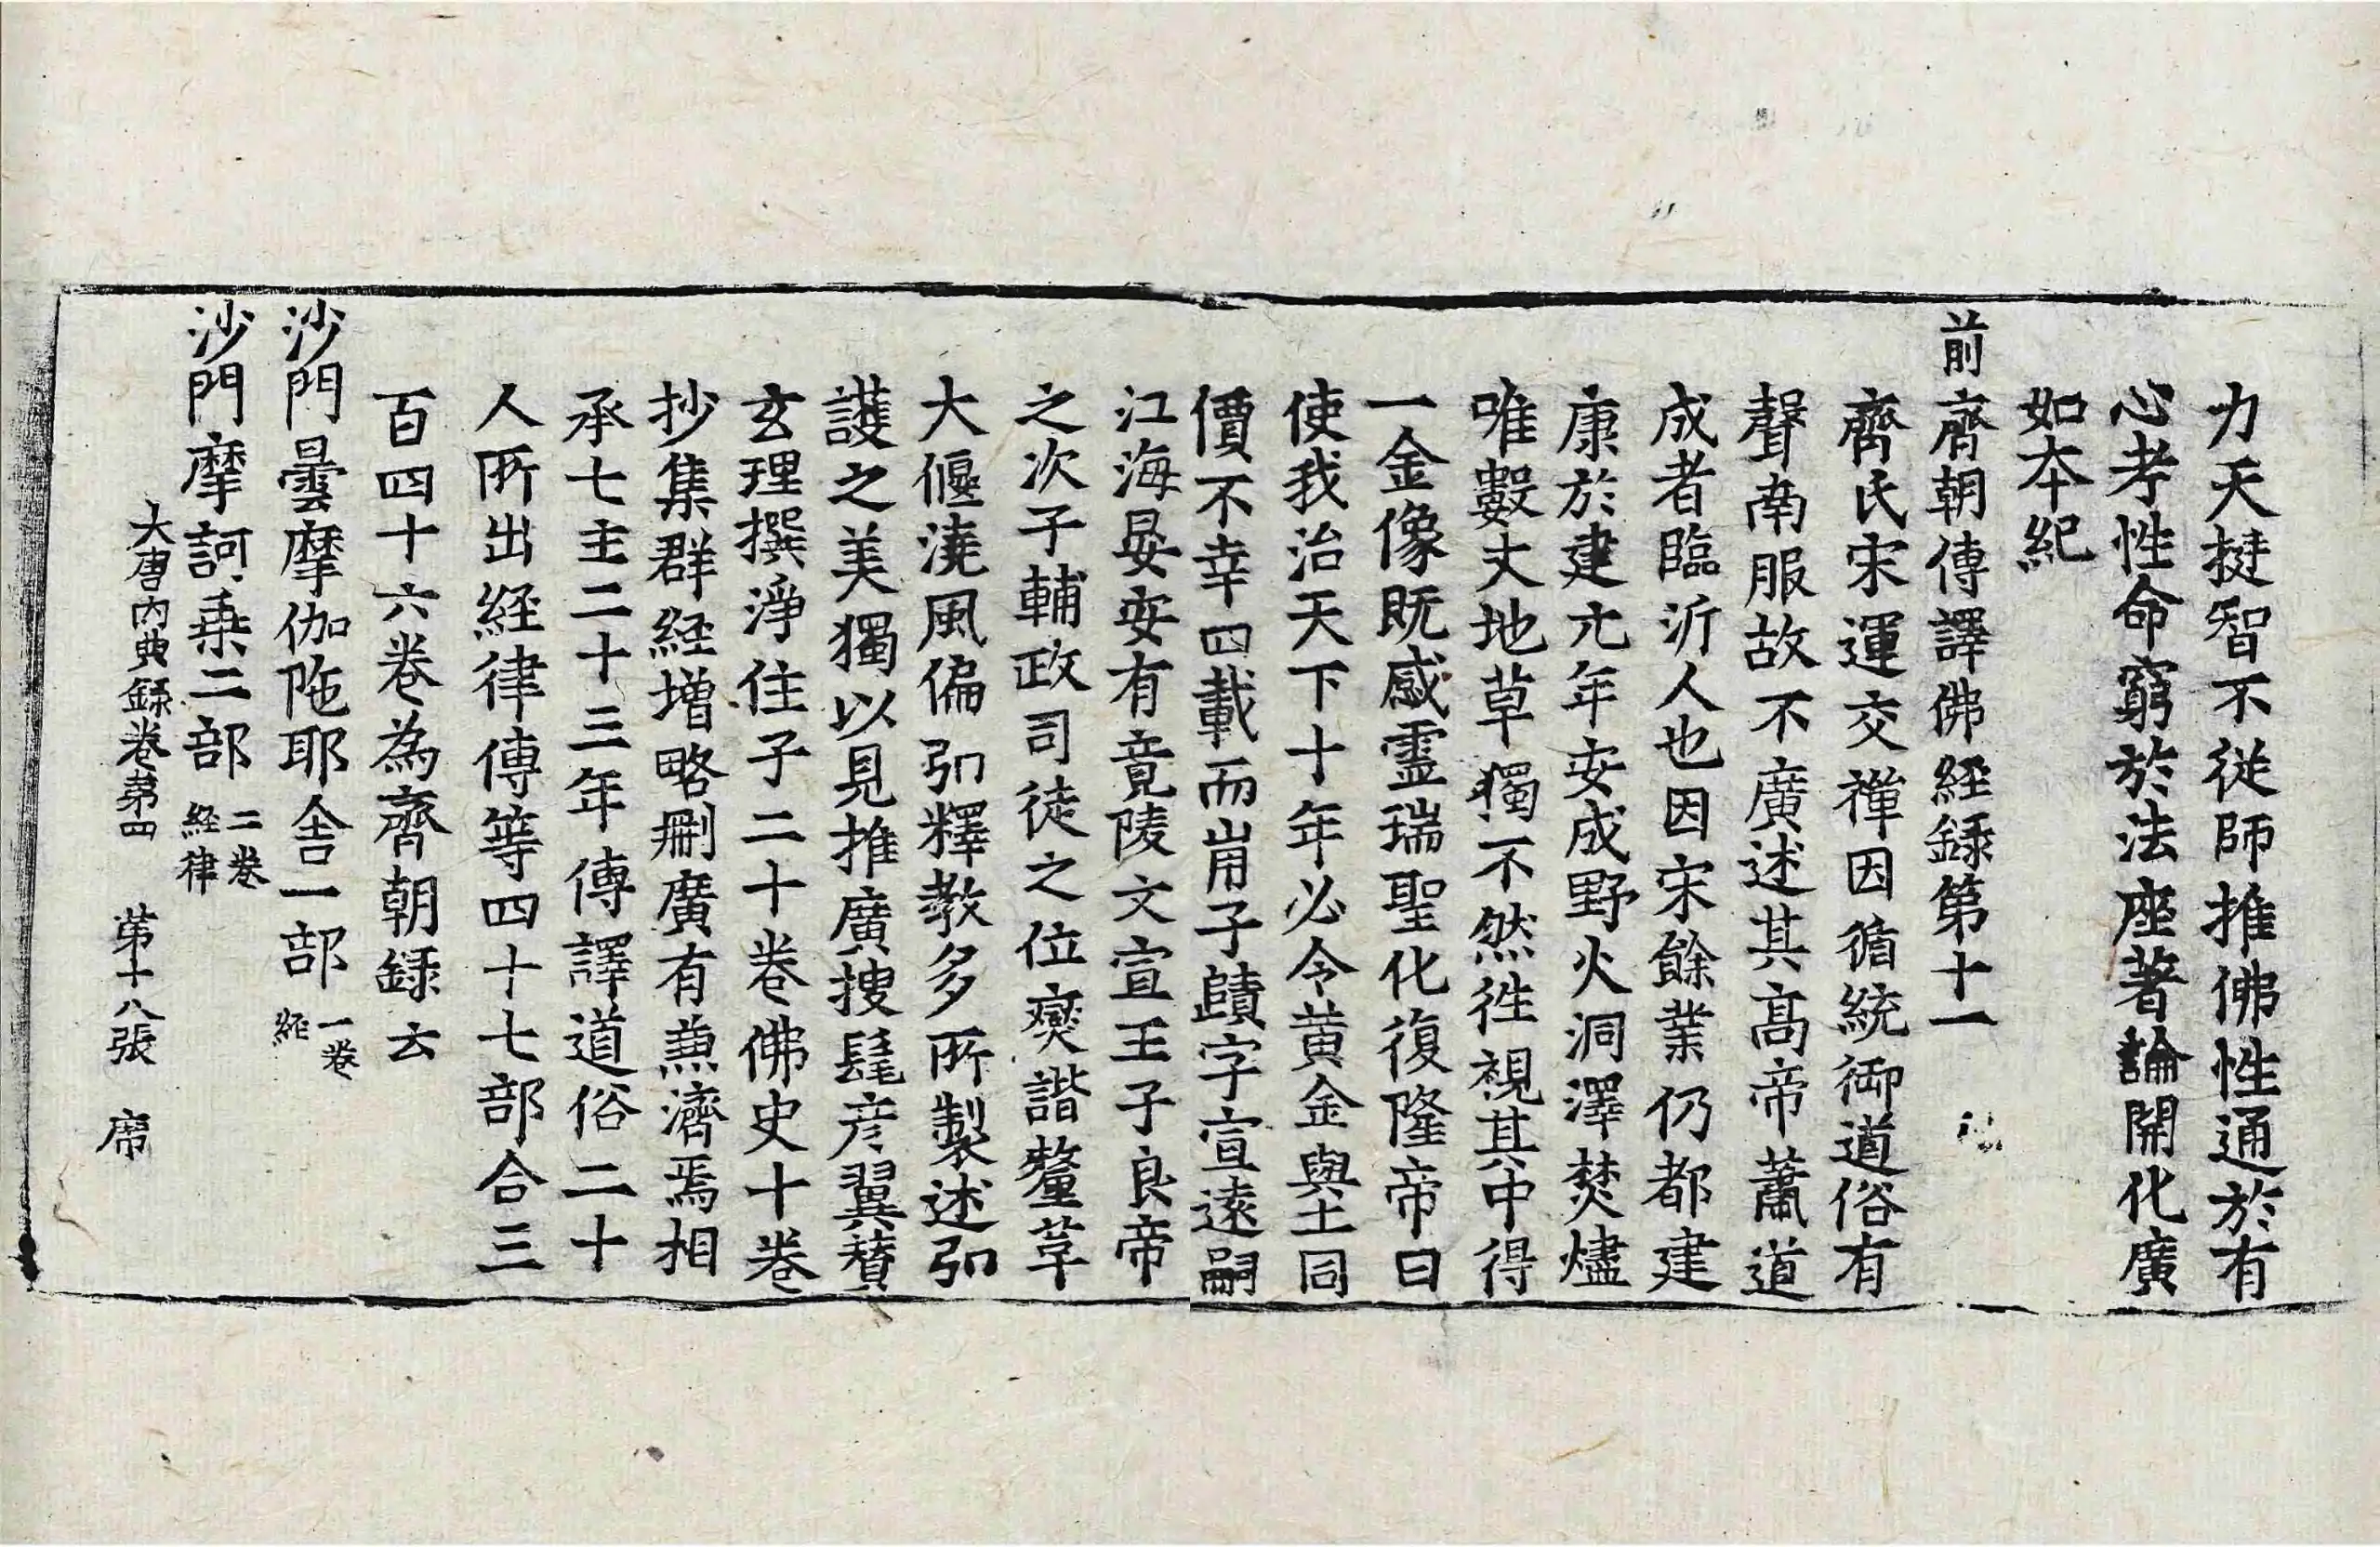 力天挺智不從師推佛性通於有
心考性命窮於法座著論開化廣
如本紀
前齊朝傳譯佛経録第十一
齊氏宋運交禪因循統御道俗有
聲南服故不廣述其髙帝蕭道
成者臨沂人也因宋餘業仍都建
康於建元年安成野火洞澤焚燼
唯數丈地草獨不然徃視其中得
一金像既感靈瑞聖化復隆帝曰
使我治天下十年必令黄金與土同
價不幸四載而崩子賾字宣遠嗣
江海晏安有竟陵文宣王子良帝
之次子輔政司徒之位爕諧釐革
大偃澆風偏弘釋教多所製述弘
護之美獨以見推廣搜髦彦翼賛
玄理撰淨住子二十卷佛史十卷
抄集群経増略刪廣有兼濟焉相
承七主二十三年傳譯道俗二十
人所出経律傳等四十七部合三
百四十六卷為齊朝録云
沙門曇摩伽陁耶舎一部 一卷経
沙門摩訶乗二部 二卷経律
大唐內典録卷第四 第十八張 席